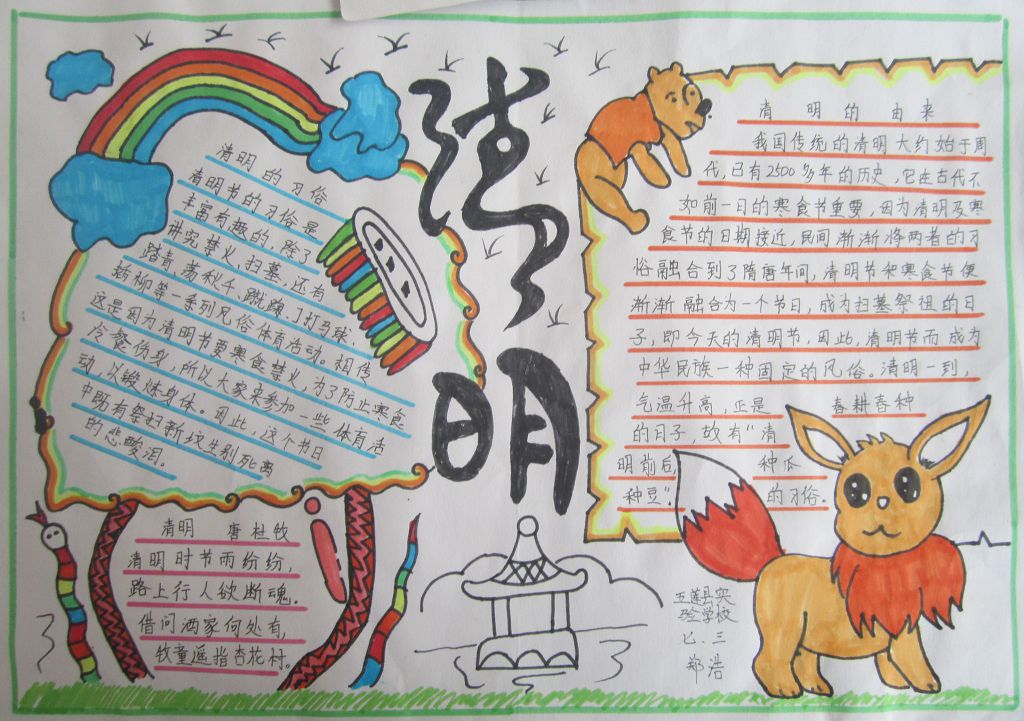 清明
清明的习俗
清明节的习俗是
丰富有趣的，除了
讲究禁火、扫墓，还有
踏青、荡秋千、蹴踘、打马球、
插柳等一系列风俗体育活动。相传
这是因为清明节要寒食禁火，为了防止寒食
冷餐伤身，所以大家来参加一些体育活
动，以锻炼身体。因此，这个节日
中既有祭扫新坟生别死离
的悲酸泪。
清明 唐 杜牧
清明时节雨纷纷，
路上行人欲断魂。
借问酒家何处有，
牧童遥指杏花村。
清明的由来
我国传统的清明大约始于周
代，已有2500多年的历史，它在古代不
如前一日的寒食节重要，因为清明及寒
食节的日期接近，民间渐渐将两者的习
俗融合到了隋唐年间，清明节和寒食节便
渐渐融合为一个节日，成为扫墓祭祖的日
子，即今天的清明节，因此，清明节而成为
中华民族一种固定的风俗。清明一到，
气温升高，正是 春耕春种
的日子，故有“清
明前后， 种瓜
种豆”. 的习俗.
五莲县实
验学校
七.三
郑浩